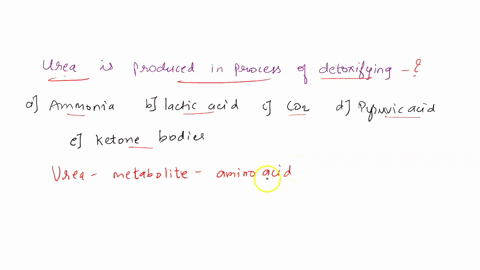 Urea is produced in process of detoxifying - ?
a] Ammonia b] lactic acid c] CO2 d] Pyruvic acid
e] Ketone bodies
Urea - metabolite - amino acid